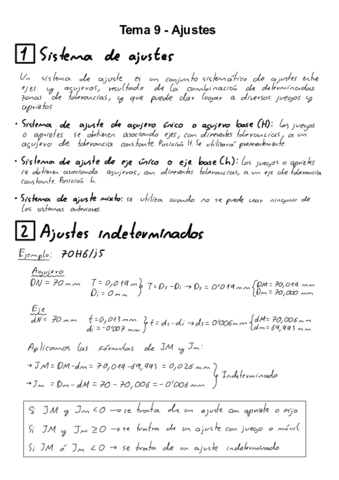 Tema 9 - Ajustes
1 Sistema de ajustes
Un sistema de ajuste es un conjunto sistemático de ajustes entre
ejes y agujeros, resultado de la combinación de determinadas
zonas de tolerancias, y que puede dar lugar a diversos juegos y
aprietos
• Sistema de ajuste de agujero único o agujero base (H): los juegos
o aprietes se obtienen asociando ejes, con diferentes tolerancias, a un
agujero de tolerancia constante. Posición H. Se utiliza
• Sistema de ajuste de eje único o eje base (h): los juegos o aprietes
se obtienen asociando agujeros, con diferentes tolerancias, a un eje de tolerancia
constante. Posición h.
• Sistema de ajuste mixto: se utiliza cuando no se puede usar ninguno de
los sistemas anteriores.
2 Ajustes indeterminados
Ejemplo: 70H6/j5
Agujero
DN = 70 mm T = 0,019 m Di = 0 mm } T = Ds - Di → Ds = 0'019 mm { DM = 70,019 mm Dm = 70,000 mm
Eje
dN = 70 mm t = 0,013 mm di = -0'007 mm } t = ds - di → ds = 0'006 mm { dM = 70,006 mm dm = 69,993 mm
Aplicamos las fórmulas de JM y Jm:
→ JM = DM - dm = 70,019 - 69,993 = 0,026 mm
→ Jm = Dm - dM = 70 - 70,006 = -0'006 mm } Indeterminado
Si JM y Jm < 0 → se trata de un ajuste con apriete o fijo
Si JM y Jm ≥ 0 → se trata de un ajuste con juego o móvil
Si JM ó Jm < 0 → se trata de un ajuste indeterminado